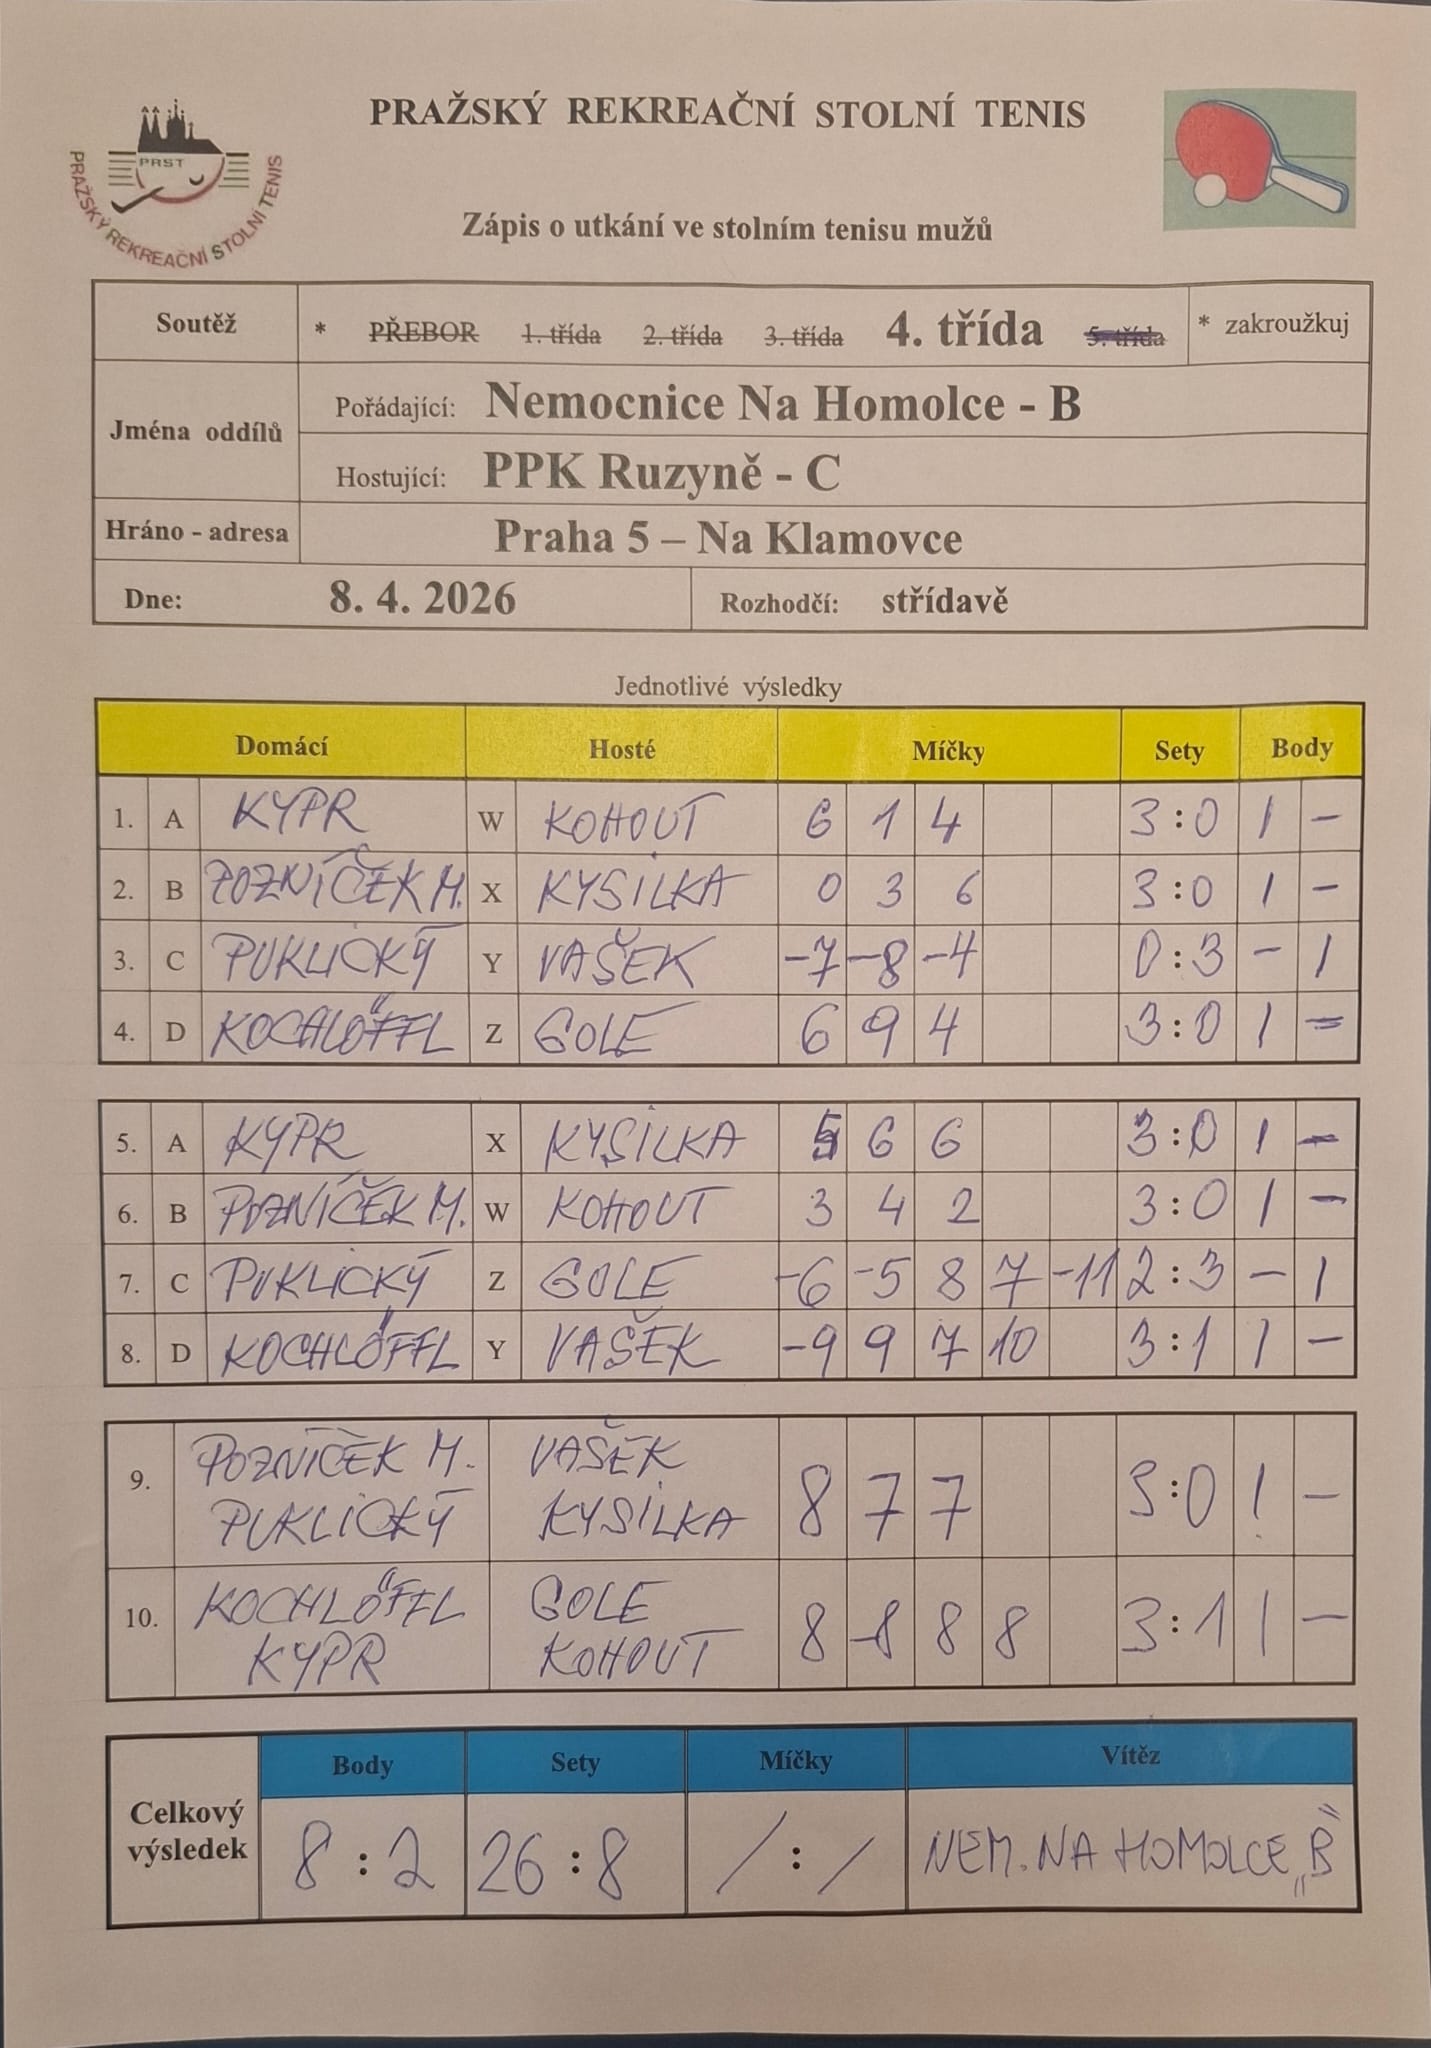 PRAŽSKÝ REKREAČNÍ STOLNÍ TENIS
PRST
PRAŽSKÝ REKREAČNÍ STOLNÍ TENIS
Zápis o utkání ve stolním tenisu mužů
Soutěž * PŘEBOR 1. třída 2. třída 3. třída 4. třída 5. třída * zakroužkuj
Jména oddílů
Pořádající: Nemocnice Na Homolce - B
Hostující: PPK Ruzyně - C
Hráno - adresa Praha 5 – Na Klamovce
Dne: 8. 4. 2026 Rozhodčí: střídavě
Jednotlivé výsledky
Domácí Hosté Míčky Sety Body
1. A KYPR W KOHOUT 6 1 4 3:0 1 -
2. B POZNÍČEK M. X KYSILKA 0 3 6 3:0 1 -
3. C PUKLICKÝ Y VAŠEK -7 -8 -4 0:3 - 1
4. D KOCHLÖFFL Z GOLE 6 9 4 3:0 1 -
5. A KYPR X KYSILKA 5 6 6 3:0 1 -
6. B POZNÍČEK M. W KOHOUT 3 4 2 3:0 1 -
7. C PUKLICKÝ Z GOLE -6 -5 8 7 -11 2:3 - 1
8. D KOCHLÖFFL Y VAŠEK -9 9 7 10 3:1 1 -
9. POZNÍČEK M. VAŠEK 8 7 7 3:0 1 -
PUKLICKÝ KYSILKA
10. KOCHLÖFFL GOLE 8 -8 8 8 3:1 1 -
KYPR KOHOUT
Celkový výsledek
Body Sety Míčky Vítěz
8:2 26:8 /:/ NEM. NA HOMOLCE „B"